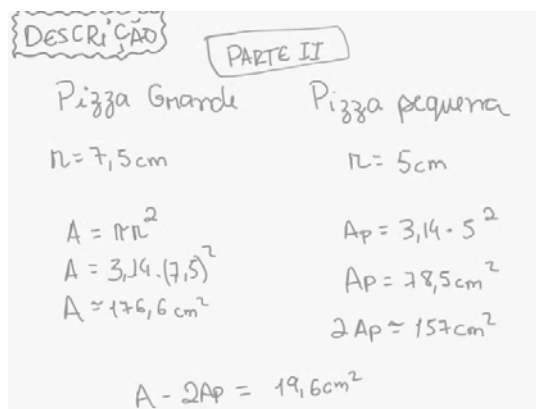 DESCRIÇÃO
PARTE II
Pizza Grande
r = 7,5cm
A = πr²
A = 3,14.(7,5)²
A ≃ 176,6 cm²
Pizza pequena
r = 5cm
Ap = 3,14 . 5²
Ap = 78,5cm²
2Ap ≃ 157cm²
A - 2Ap = 19,6cm²